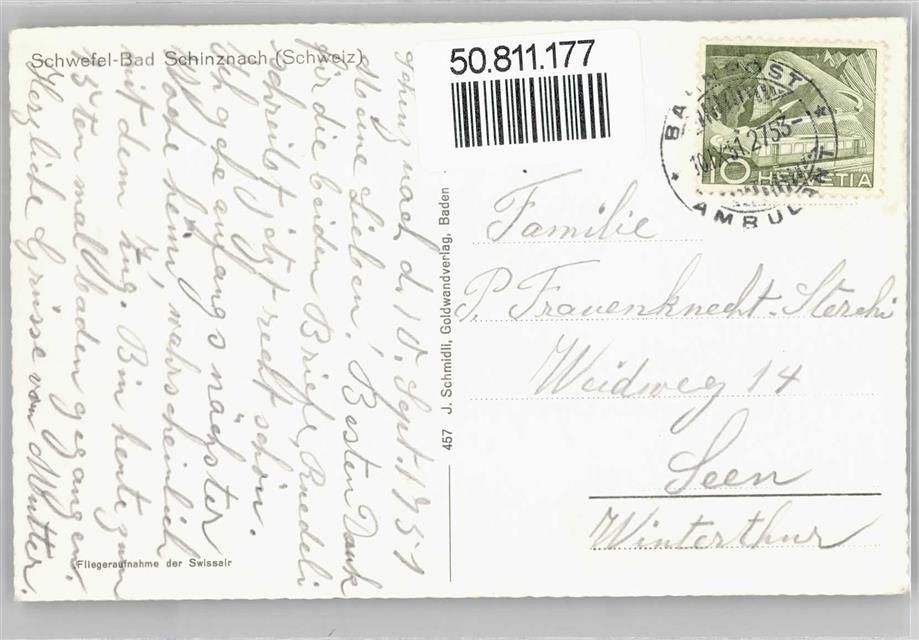 Schwefel-Bad Schinznach (Schweiz)
50.811.177
BAHNPOST
10.IX.51.2753-
AMBULANT
10 HELVETIA
nach d. 10. Sept. 1951
Meine Lieben! Besten Dank
für die beiden Briefe, Ruedeli
schreibt jetzt recht schön.
Ich gehe anfangs nächster
Woche heim, wahrscheinlich
mit dem Zug. Bin heute zum
15ten mal baden gegangen.
Herzliche Grüsse von Mutter.
457 J. Schmidli, Goldwandverlag, Baden
Familie
P. Frauenknecht-Storchi
Weidweg 14
Seen
Winterthur
Fliegeraufnahme der Swissair